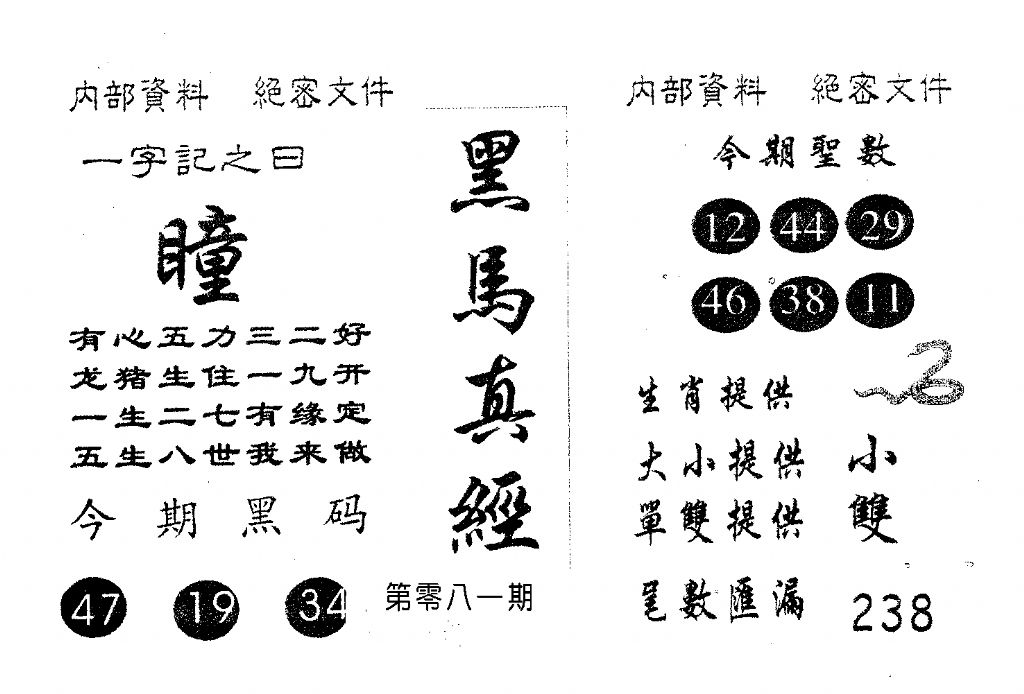 內部資料 絕密文件
一字記之曰
瞳
有心五力三二好
龙猪生住一九开
一生二七有缘定
五生八世我来做
今期黑码
47 19 34
黑馬真經
第零八一期
內部資料 絕密文件
今期聖數
12 44 29
46 38 11
生肖提供
大小提供 小
單雙提供 雙
數匯漏 238